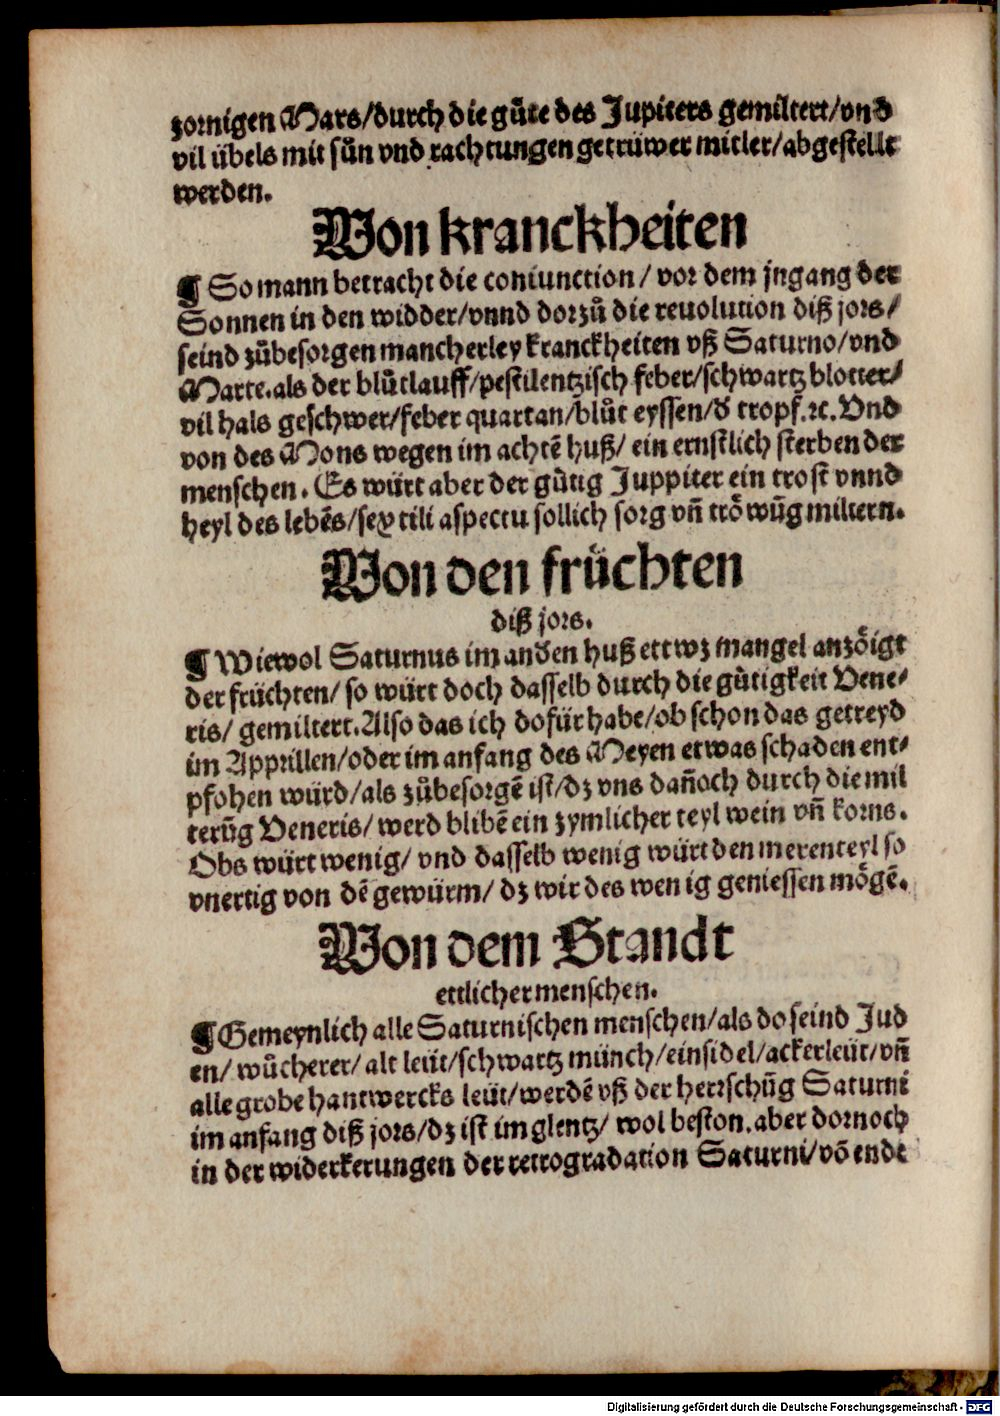 zornigen Mars/durch die guͤte des Jupiters gemiltert/vnd
vil übels mit suͤn vnd rachtungen getrüwer mitler/abgestellt
werden.
Von kranckheiten
¶ So mann betracht die coniunction/ vor dem jngang der
Sonnen in den widder/vnnd dorzuͦ die reuolution diß jors/
seind zuͦbesorgen mancherley kranckheiten vß Saturno/vnd
Marte.als der bluͦtlauff/pestilentzisch feber/schwartz blotter/
vil hals geschwer/feber quartan/bluͦt eyssen/d' tropf.ꝛc.Vnd
von des Mons wegen im achtē huß/ ein ernstlich sterben der
menschen. Es würt aber der guͤtig Juppiter ein trost vnnd
heyl des lebēs/sextili aspectu sollich sorg vñ trōwūg miltern.
Von den früchten
diß jors.
¶ Wiewol Saturnus im anden huß ettwz mangel anzoͤigt
der früchten/ so würt doch dasselb durch die guͤtigkeit Vene⸗
ris/ gemiltert.Also das ich dofür habe/ob schon das getreyd
im Apprillen/oder im anfang des Meyen etwas schaden ent⸗
pfohen würd/als zuͦbesorgē ist/dz vns dañoch durch die mil
terūg Veneris/ werd blibē ein zymlicher teyl wein vñ korns.
Obs würt wenig/ vnd dasselb wenig würt den merenteyl so
vnertig von dē gewürm/ dz wir des wenig geniessen moͤgē.
Von dem Standt
ettlicher menschen.
¶ Gemeynlich alle Saturnischen menschen/als do seind Jud
en/ wuͦcherer/ alt leüt/schwartz münch/einsidel/ackerleüt/vñ
alle grobe hantwercks leüt/werdē vß der herrschūg Saturni
im anfang diß jors/dz ist im glentz/ wol beston.aber dornoch
in der widerkerungen der retrogradation Saturni/vō ende
Digitalisierung gefördert durch die Deutsche Forschungsgemeinschaft - DFG